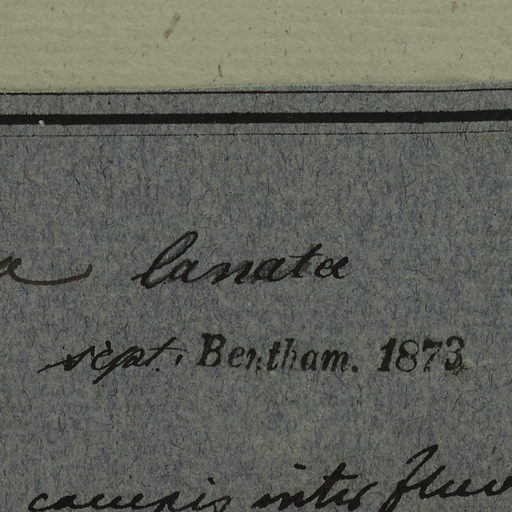 a lanata
sept. Bentham. 1873
campis inter fluv